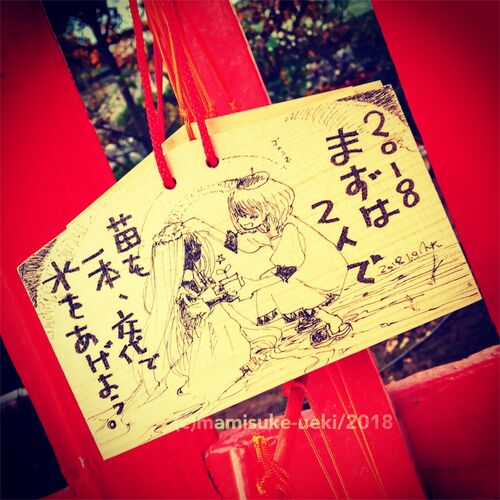 2018
まずは
2人で
苗を
一本、交代で
水をあげよう。
mamisuke-ueki/2018